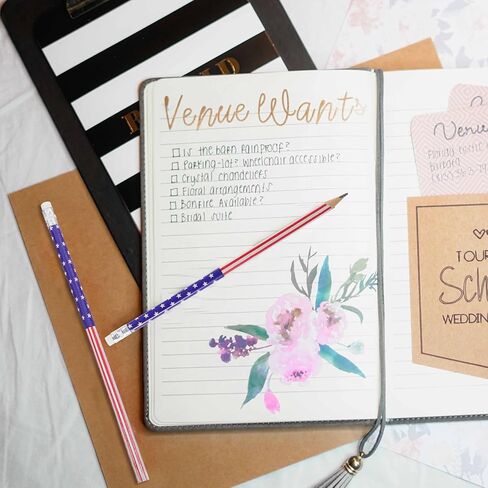 Venue Wants
Is the barn rainproof?
Parking-lot? Wheelchair accessible?
Crystal chandeliers
Floral arrangements
Bonfire Available?
Bridal suite
Venue
TOUR
WEDDING